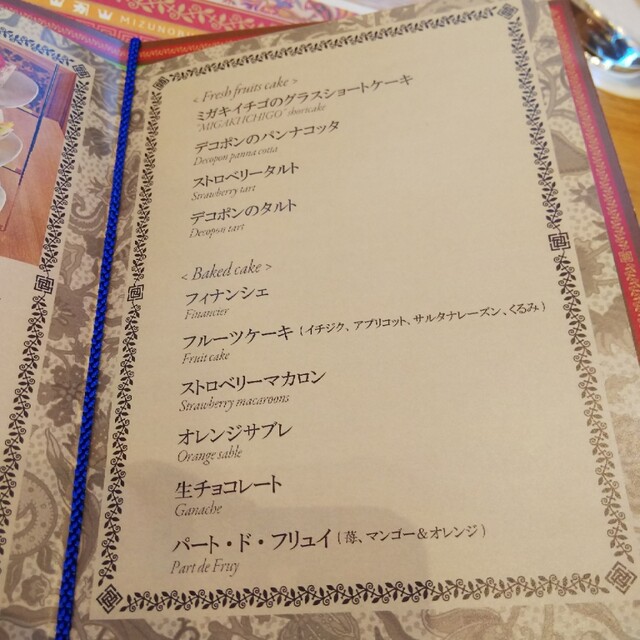 MIZUNOB
< Fresh fruits cake >
ミガキイチゴのグラスショートケーキ
"MIGAKI ICHIGO" shortcake
デコポンのパンナコッタ
Decopon panna cotta
ストロベリータルト
Strawberry tart
デコポンのタルト
Decopon tart
< Baked cake >
フィナンシェ
Financier
フルーツケーキ (イチジク、アプリコット、サルタナレーズン、くるみ)
Fruit cake
ストロベリーマカロン
Strawberry macaroons
オレンジサブレ
Orange sable
生チョコレート
Ganache
パート・ド・フリュイ (苺、マンゴー&オレンジ)
Part de Fruy